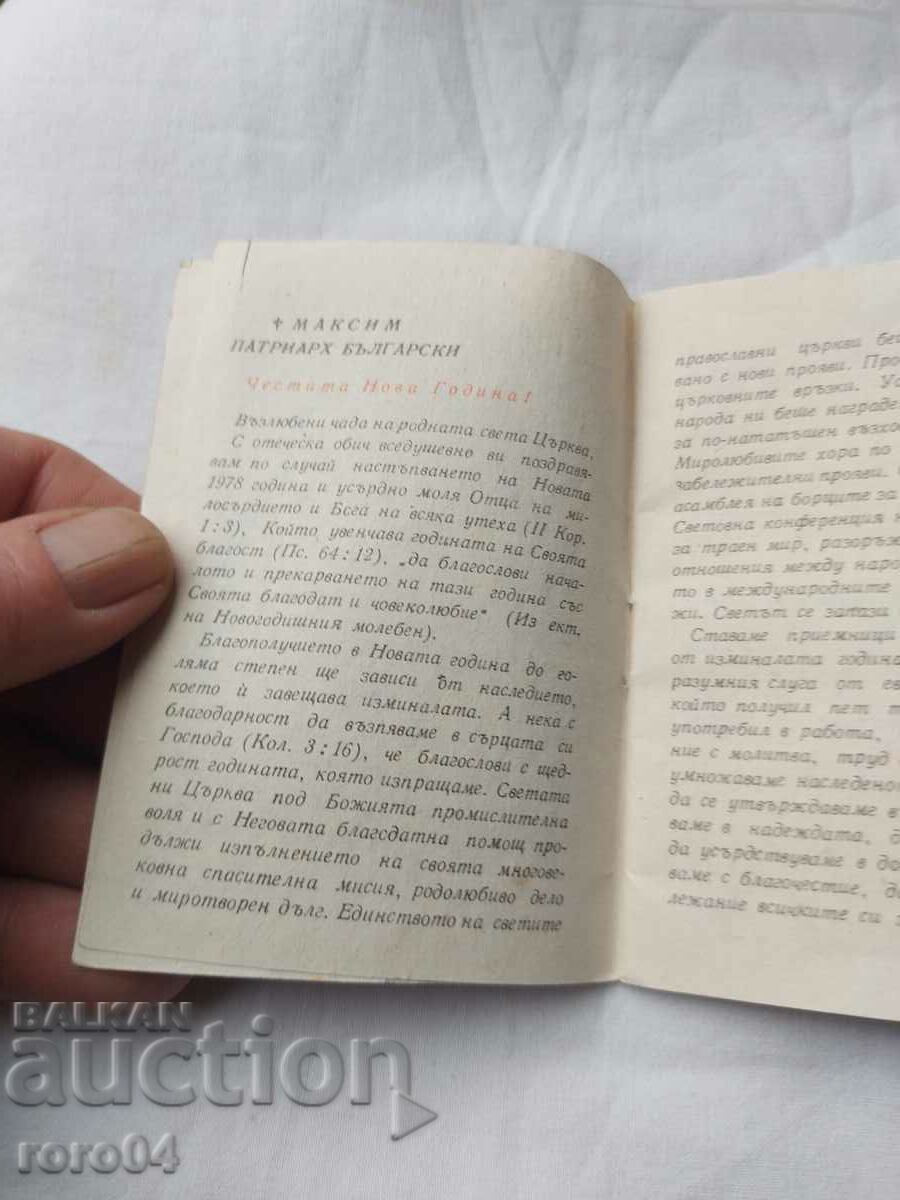 ✝ МАКСИМ
ПАТРИАРХ БЪЛГАРСКИ
Честита Нова Година!
Възлюбени чада на родната света Църква,
С отеческа обич вседушевно ви поздравя-
вам по случай настъпването на Новата
1978 година и усърдно моля Отца на ми-
лосърдието и Бсга на всяка утеха (II Кор.
1:3), Който увенчава годината на Своята
благост (Пс. 64:12), „да благослови нача-
лото и прекарването на тази година със
Своята благодат и човеколюбие“ (Из ект.
на Новогодишния молебен).
Благополучието в Новата година до го-
ляма степен ще зависи от наследието,
което ѝ завещава изминалата. А нека с
благодарност да възпяваме в сърцата си
Господа (Кол. 3:16), че благослови с щед-
рост годината, която изпращаме. Светата
ни Църква под Божията промислителна
воля и с Неговата благсдатна помощ про-
дължи изпълнението на своята многове-
ковна спасителна мисия, родолюбиво дело
и миротворен дълг. Единството на светите
православни църкви беш
вано с нови прояви. Про
църковните връзки. Ус
народа ни беше награде
за по-нататъшен възхо
Миролюбивите хора по
забележителни прояви.
асамблея на борците за
Световна конференция н
за траен мир, разоръж
отношения между наро
то в международните
жи. Светът се запази
Ставаме приемници
от изминалата година
разумния слуга от ев
който получил пет т
употребил в работа,
ние с молитва, труд
умножаваме наследено
да се утвърждаваме в
ваме в надеждата, д
да усърдствуваме в до
ваме с благочестие, да
лежание всичките си
BALKAN
auction
roro04